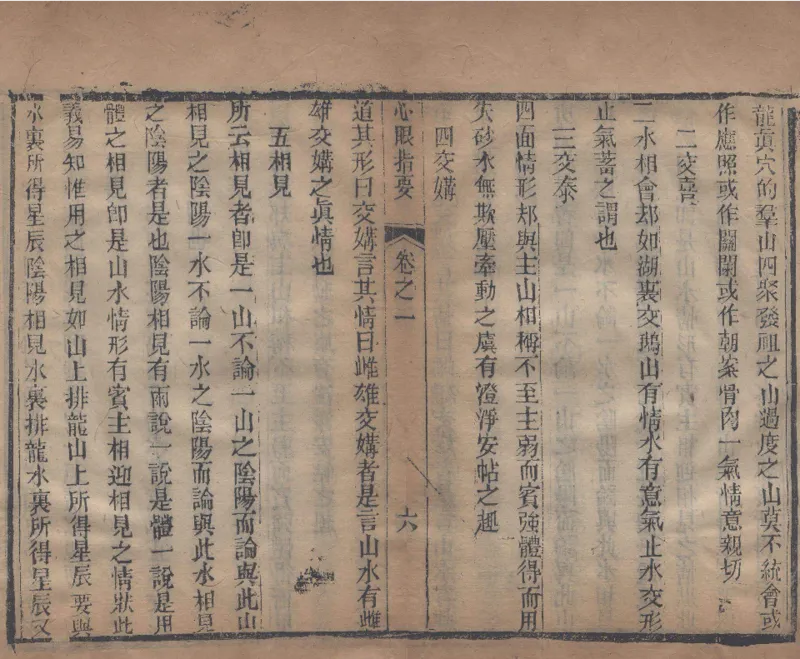 龍眞穴的羣山四聚發祖之山過度之山莫不統會或
作應照或作關闌或作朝案骨肉一氣情意親切
二交喜
二水相會却如湖裏交鴉山有情水有意氣止水交形
止氣蓄之謂也
三交泰
四面情形却與主山相稱不至主弱而賓強體得而用
失砂水無欺壓牽動之虞有澄淨安帖之趣
四交媾
心眼指要
卷之一
六
道其形曰交媾言其情曰雌雄交媾者是言山水有雌
雄交媾之眞情也
五相見
所云相見者卽是一山不論一山之陰陽而論與此山
相見之陰陽一水不論一水之陰陽而論與此水相見
之陰陽者是也陰陽相見有兩說一說是體一說是用
體之相見卽是山水情形有賓主相迎相見之情狀此
義易知惟用之相見如山上排龍山上所得星辰要與
水裏所得星辰陰陽相見水裏排龍水裏所得星辰又